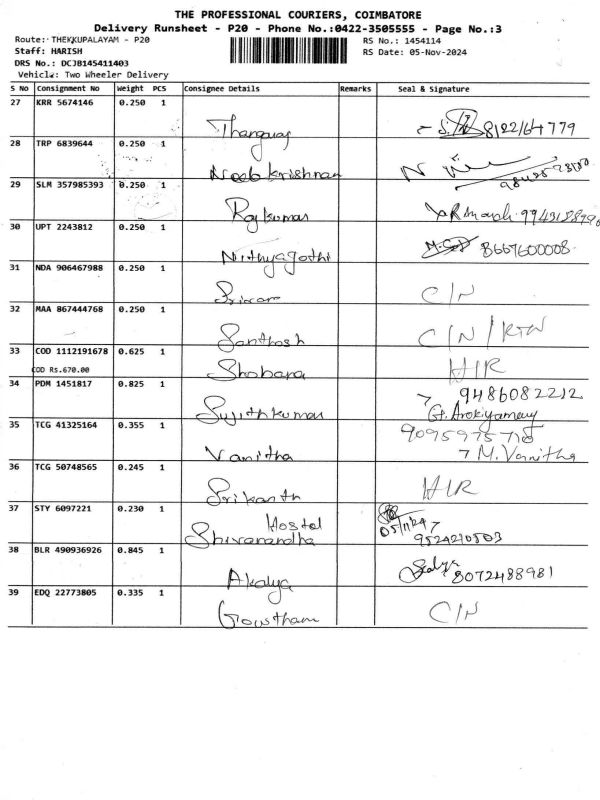 THE PROFESSIONAL COURIERS, COIMBATORE
Delivery Runsheet - P20 - Phone No.:0422-3505555 - Page No.:3
Route: THEKKUPALAYAM - P20 RS No.: 1454114
Staff: HARISH RS Date: 05-Nov-2024
DRS No.: DCJB145411403
Vehicle: Two Wheeler Delivery
S No Consignment No Weight PCS Consignee Details Remarks Seal & Signature
27 KRR 5674146 0.250 1
Thangaraj 8122164779
28 TRP 6839644 0.250 1
Neelakrishnan
29 SLM 357985393 0.250 1
Rajkumar
30 UPT 2243812 0.250 1
Nithyagothi 8667600008
31 NDA 906467988 0.250 1
Sriram C/N
32 MAA 867444768 0.250 1
Santhosh C/N / RTN
33 COD 1112191678 0.625 1
Shobana H/R
COD Rs.670.00
34 PDM 1451817 0.825 1
9486082212
Sujithkumar G. Arokiyamary
35 TCG 41325164 0.355 1
9095975718
Vanitha M. Vanitha
36 TCG 50748565 0.245 1
Srikanth H/R
37 STY 6097221 0.230 1
Hostel 05/11/24
Shivanandha 9524210503
38 BLR 490936926 0.845 1
Akalya 8072488981
39 EDQ 22773805 0.335 1
Gowtham C/N